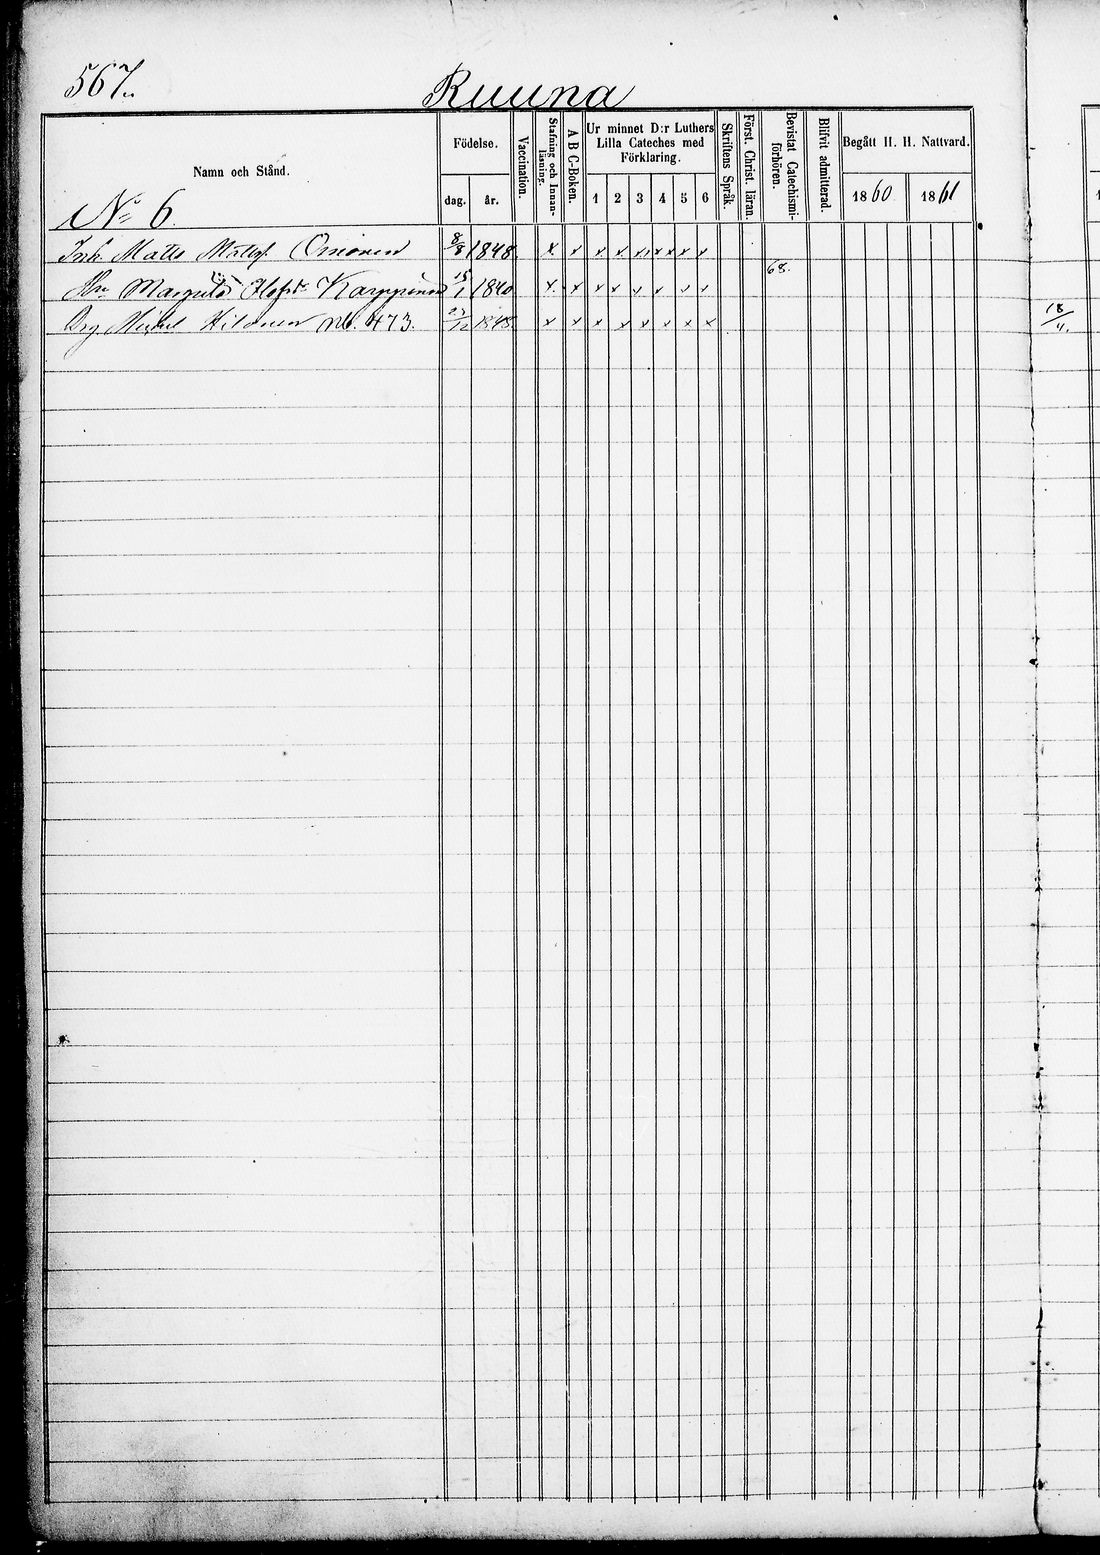 567.
Ruuna
Namn och Stånd.
Födelse.
dag. år.
Vaccination.
Stafning och Innanläsning.
A B C-Boken.
Ur minnet D:r Luthers
Lilla Cateches med
Förklaring.
1 2 3 4 5 6
Skriftens Språk
Först. Christ. läran.
Bevistat Catechismi-
förhören.
Blifvit admitterad.
Begått H. H. Nattvard.
1860 1861
No 6.
Inh. Matts Mattsf. 8/8 1848 x x x x x x x x x
Hu Karppinen 15/1 1840 x x x x x x x x 68.
Hilonen 473. /12 1848 x x x x x x x x
18/4.